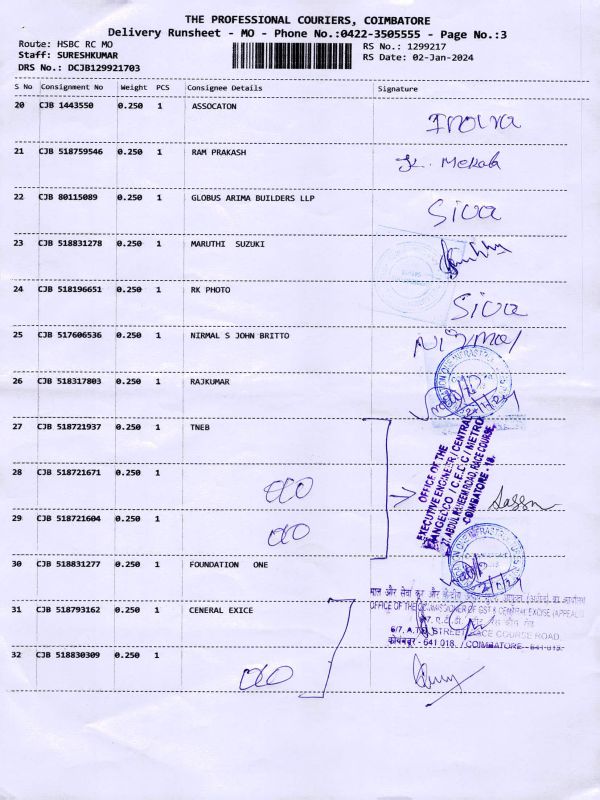 THE PROFESSIONAL COURIERS, COIMBATORE
Delivery Runsheet - MO - Phone No.:0422-3505555 - Page No.:3
Route: HSBC RC MO
RS No.: 1299217
Staff: SURESHKUMAR
RS Date: 02-Jan-2024
DRS No.: DCJB129921703
S No Consignment No Weight PCS Consignee Details Signature
20 CJB 1443550 0.250 1 ASSOCATON
21 CJB 518759546 0.250 1 RAM PRAKASH K. Mekala
22 CJB 80115089 0.250 1 GLOBUS ARIMA BUILDERS LLP Siva
23 CJB 518831278 0.250 1 MARUTHI SUZUKI
24 CJB 518196651 0.250 1 RK PHOTO Siva
25 CJB 517606536 0.250 1 NIRMAL S JOHN BRITTO Nirmal
26 CJB 518317803 0.250 1 RAJKUMAR
27 CJB 518721937 0.250 1 TNEB
OFFICE OF THE
EXECUTIVE ENGINEER / CENTRAL
TANGEDCO / C.E.D.C / METRO
RACE COURSE,
COIMBATORE - 18.
28 CJB 518721671 0.250 1
29 CJB 518721604 0.250 1
30 CJB 518831277 0.250 1 FOUNDATION ONE
31 CJB 518793162 0.250 1 CENERAL EXICE
OFFICE OF THE COMMISSIONER OF GST & CENTRAL EXCISE (APPEALS)
6/7, A.T.D. STREET, RACE COURSE ROAD,
कोयम्बटूर - 641 018. / COIMBATORE - 641 018.
32 CJB 518830309 0.250 1